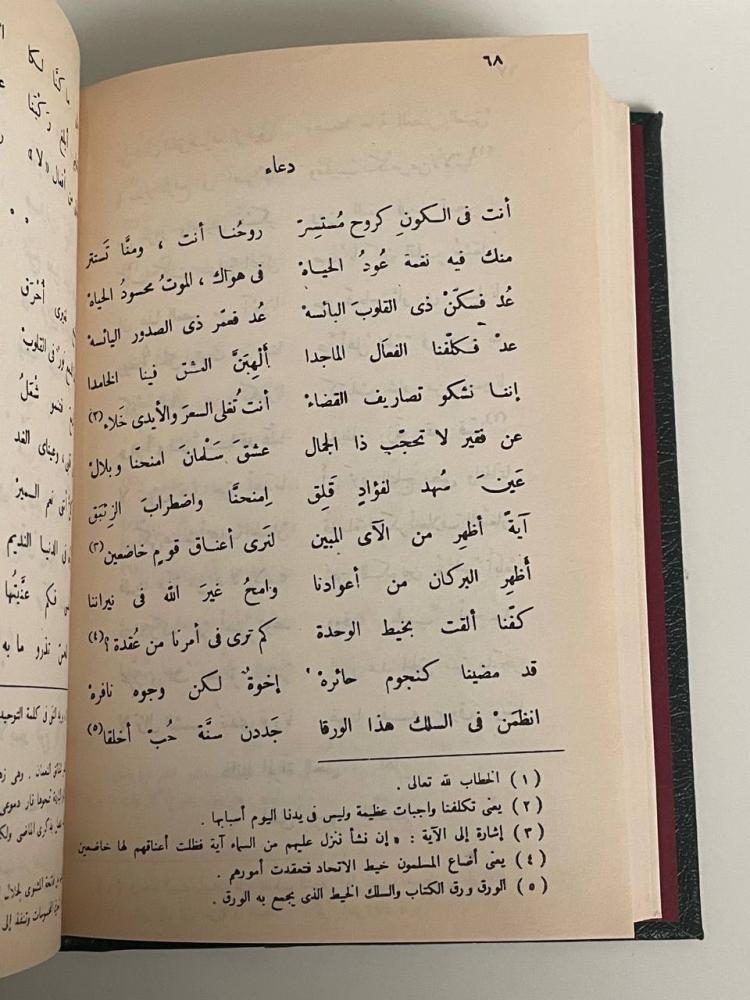 ٦٨
دعاء
أنت فى الكونِ كروح مُستسِرّ روحُنا أنت ، ومنَّا تَستتر
منك فيه نغمة عُودُ الحياهْ فى هواك ، الموتُ محسودُ الحياهْ
عُد فسكّنْ ذى القلوبَ البائسهْ عُد فعمّر ذى الصدور اليائسهْ
عدْ فكلّفنا الفعال الماجدا ألْهِبَنَّ العشق فينا الخامدا
إننا نشكو تصاريف القضاءْ أنت تُغلى السعرَ والأيدى خَلاء (٢)
عن فقير لا تحجّب ذا الجمال عشقَ سَلْمانَ امنحنّا وبلالْ
عَينَ سُهد لفؤادٍ قَلِق اِمنحنَّا واضطرابَ الزِئبَق
آيةً أظهرِ من الآى المبين لنَرى أعناق قومٍ خاضعين (٣)
أظهرِ البركان من أعوادنا وامحُ غيرَ الله فى نيراننا
كفّنا ألقت بخيط الوحدة كم ترى فى أمرنا من عُقدة ؟ (٤)
قد مضينا كنجوم حائرهْ إخوةٌ لكن وجوه نافرهْ
انظمَنْ فى السلك هذا الورقا جَددن سنَّة حُبّ أخلقا (٥)
(١) الخطاب لله تعالى .
(٢) يعنى تكلفنا واجبات عظيمة وليس فى يدنا اليوم أسبابها .
(٣) إشارة إلى الآية : « إن نشأ ننزل عليهم من السماء آية فظلت أعناقهم لها خاضعين
(٤) يعنى أضاع المسلمون خيط الاتحاد فتعقدت أمورهم .
(٥) الورق ورق الكتاب والسلك الخيط الذى يجمع به الورق .